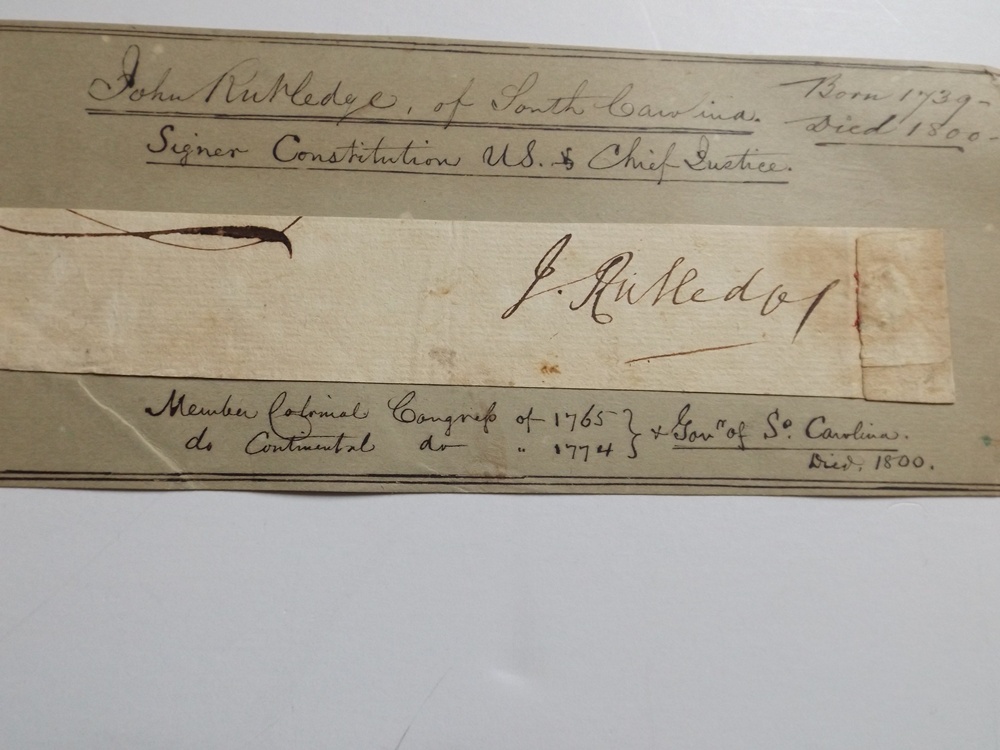 John Rutledge, of South Carolina. Born 1739-
Died 1800-
Signer Constitution U.S. & Chief Justice.
J. Rutledge
Member Colonial Congress of 1765 } & Govnr of So. Carolina.
do Continental do " 1774
Died, 1800.